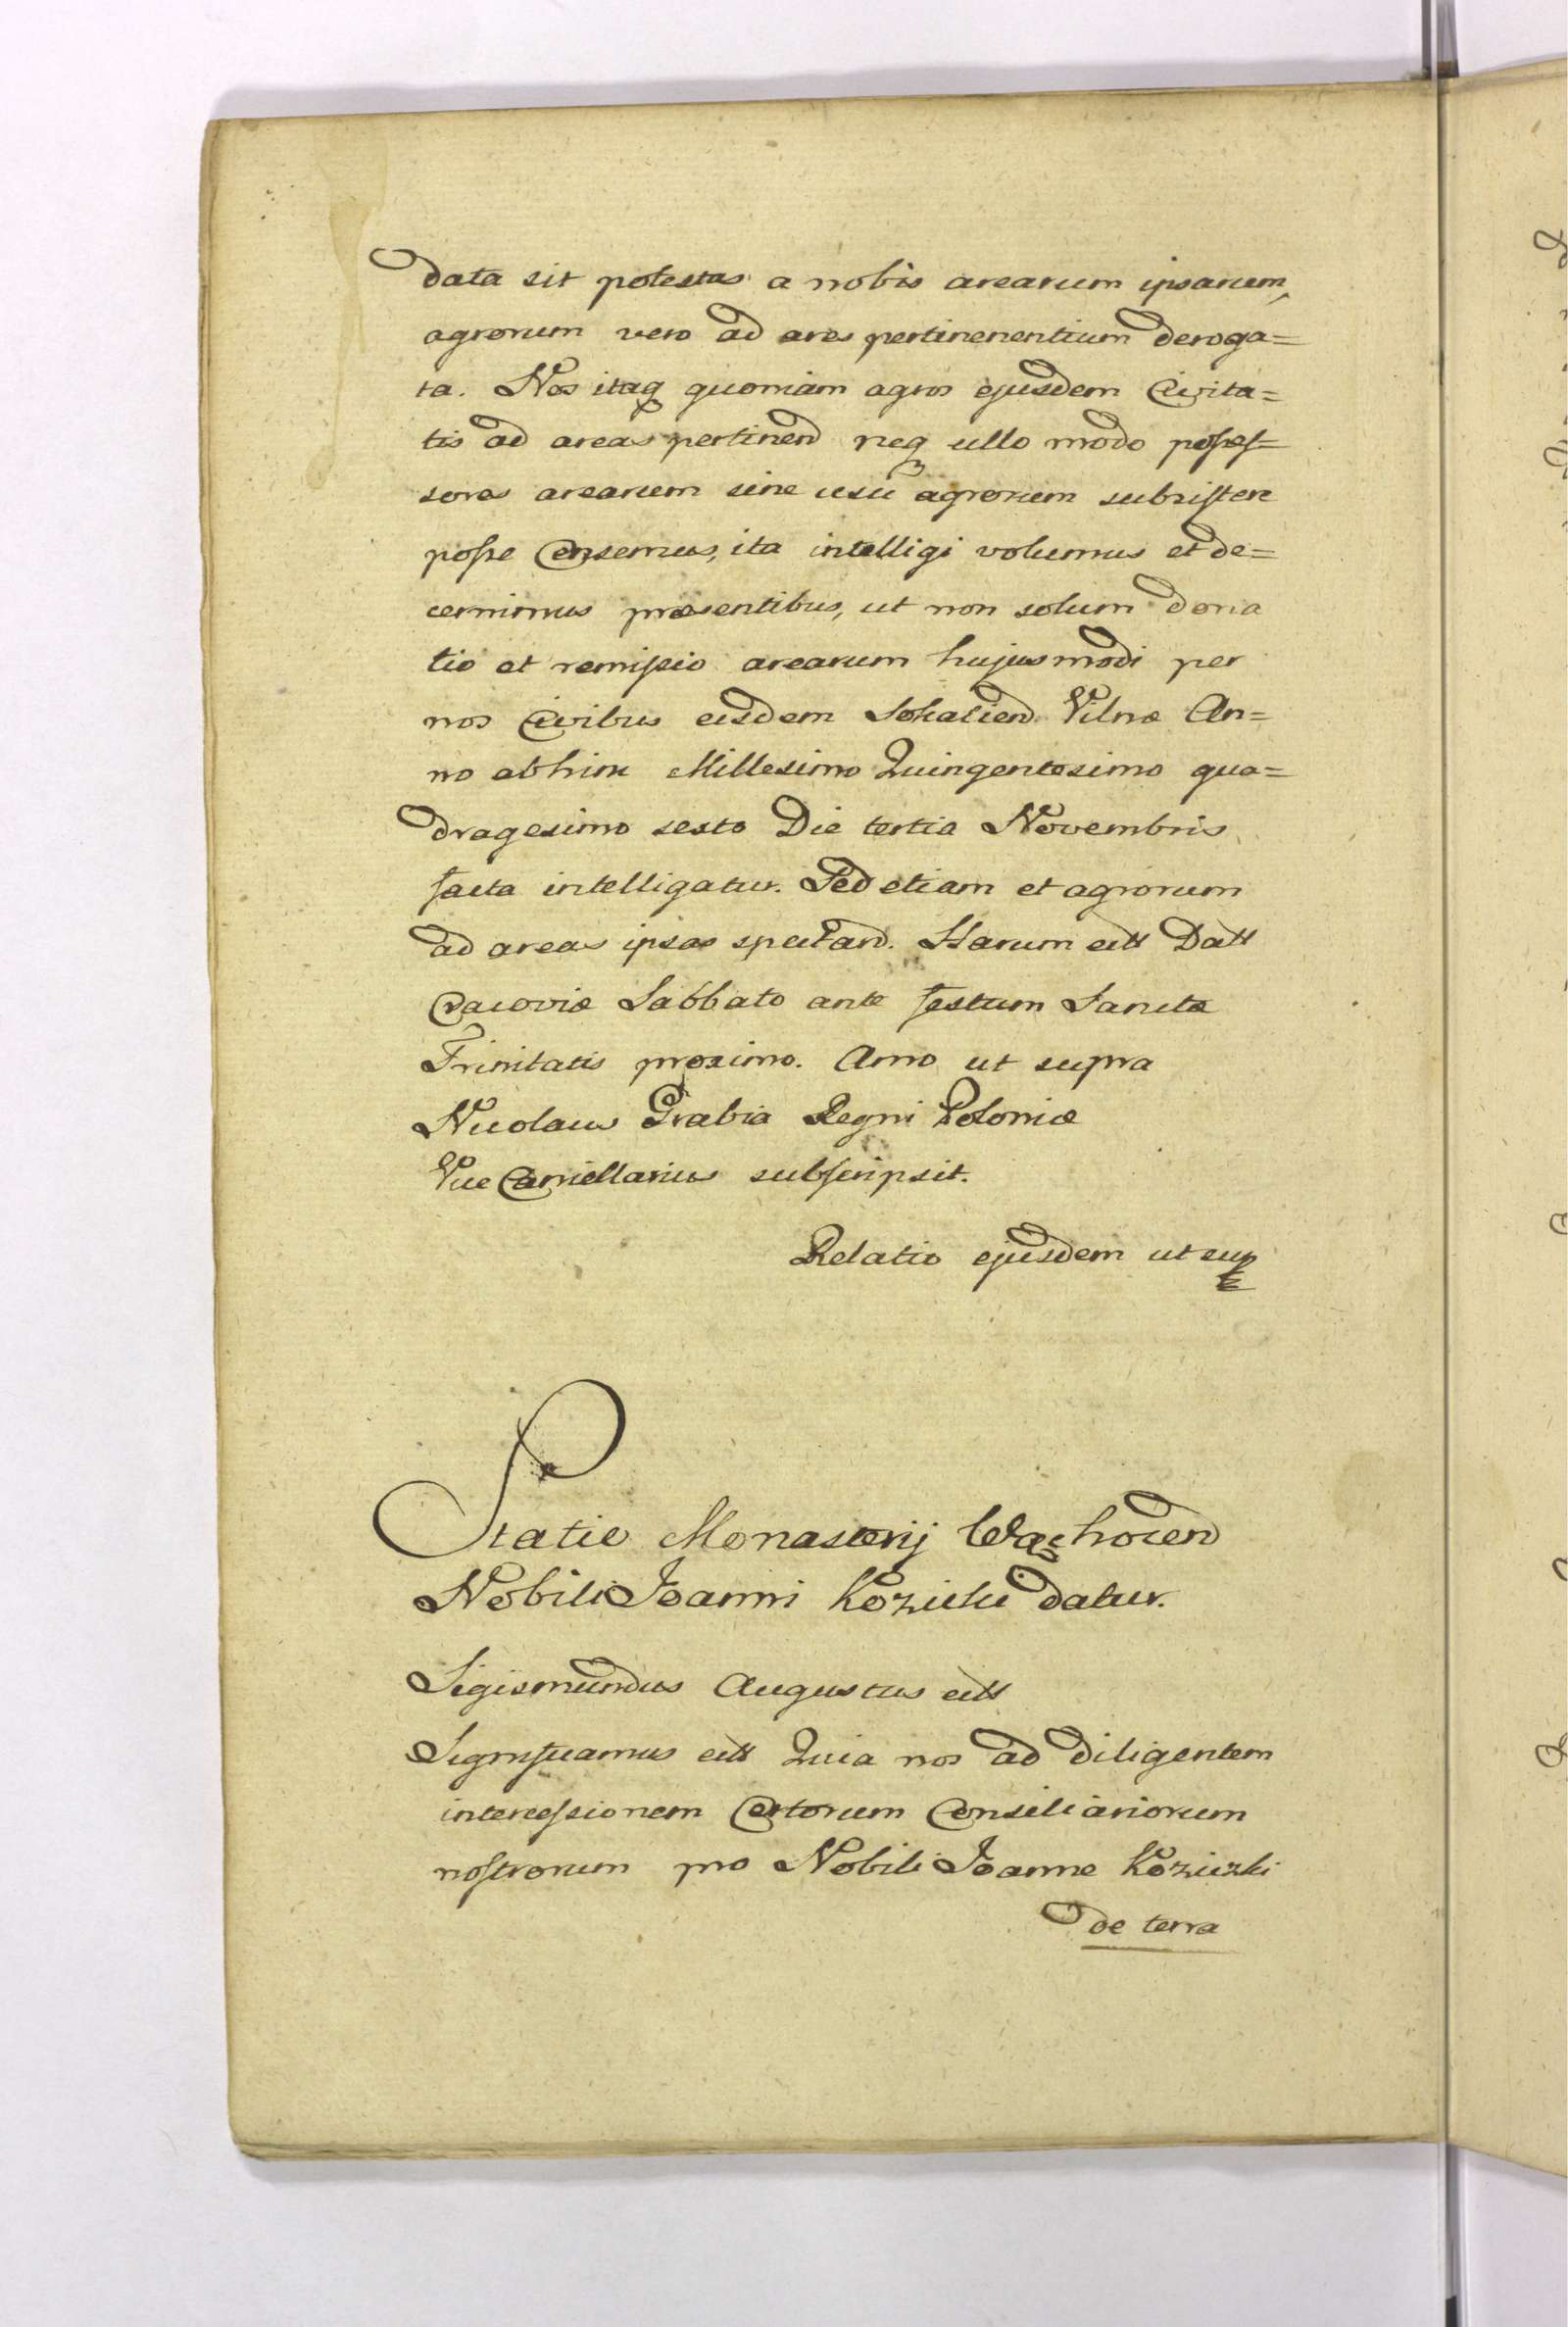 data sit potestas a nobis arearum ipsarum,
agrorum vero ad ares pertinenentium deroga=
ta. Nos itaq quoniam agros ejusdem Civita=
tis ad areas pertinend neq ullo modo posses=
sores arearum sine usu agrorum subsistere
posse Censemus, ita intelligi volumus et de=
cernimus præsentibus, ut non solum dona
tio et remissio arearum hujusmodi per
nos Civibus eisdem Sokaliend Vilnæ An=
no abhinc Millesimo Quingentesimo qua=
dragesimo sexto Die tertia Novembris
facta intelligatur. Sed etiam et agrorum
ad areas ipsas spectand. Harum ett Datt
Cracoviæ Sabbato ante festum Sanctæ
Trinitatis proximo. Anno ut supra
Nicolaus Grabia Regni Poloniæ
Vice Cancellarius subscripsit.
Relatio ejusdem ut sup
Statio Monasterij Wachocen
Nobili Joanni datur.
Sigismundus Augustus ett
Significamus ett Quia nos ad diligentem
intercessionem Certorum Consiliariorum
nostrorum pro Nobili Joanne Koziczki
de terra